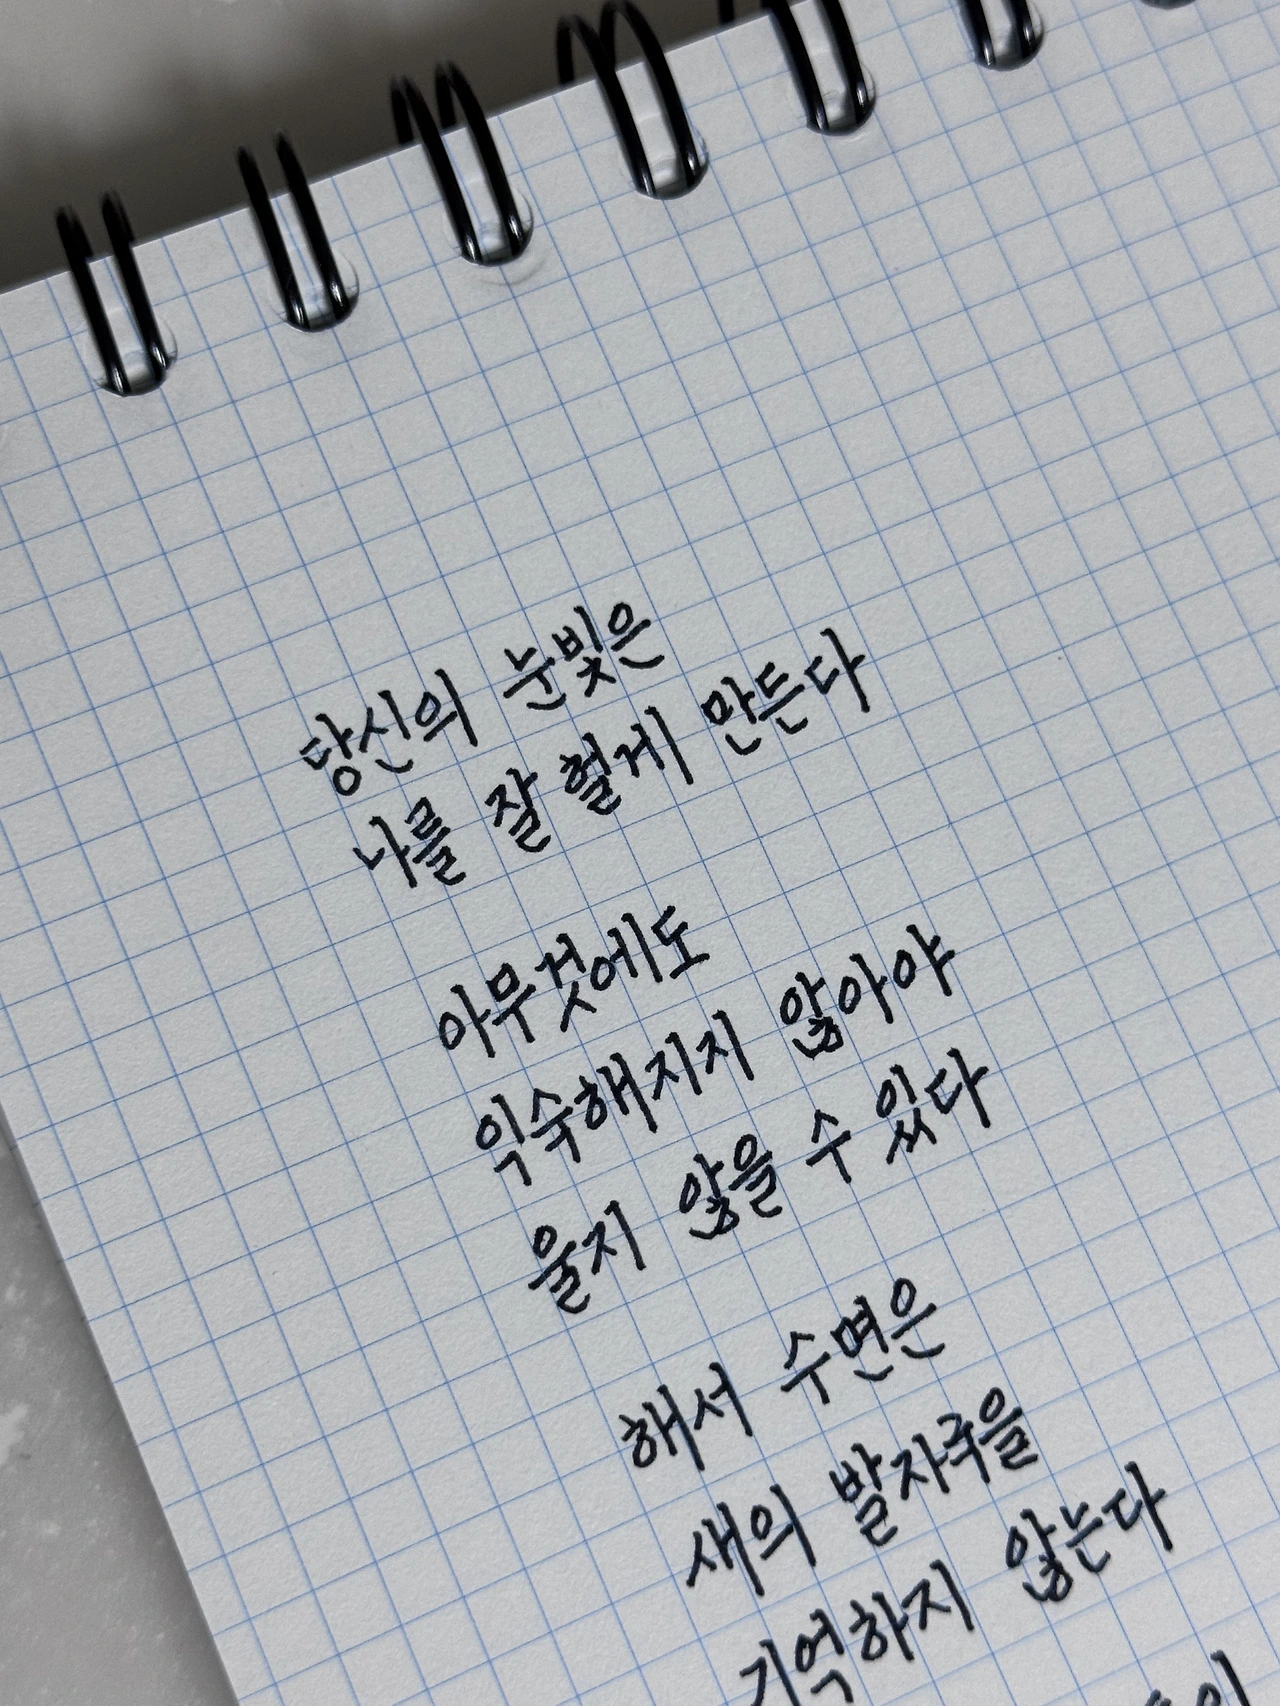 당신의 눈빛은
나를 잘 헐게 만든다
아무것에도
익숙해지지 않아야
울지 않을 수 있다
해서 수면은
새의 발자국을
기억하지 않는다